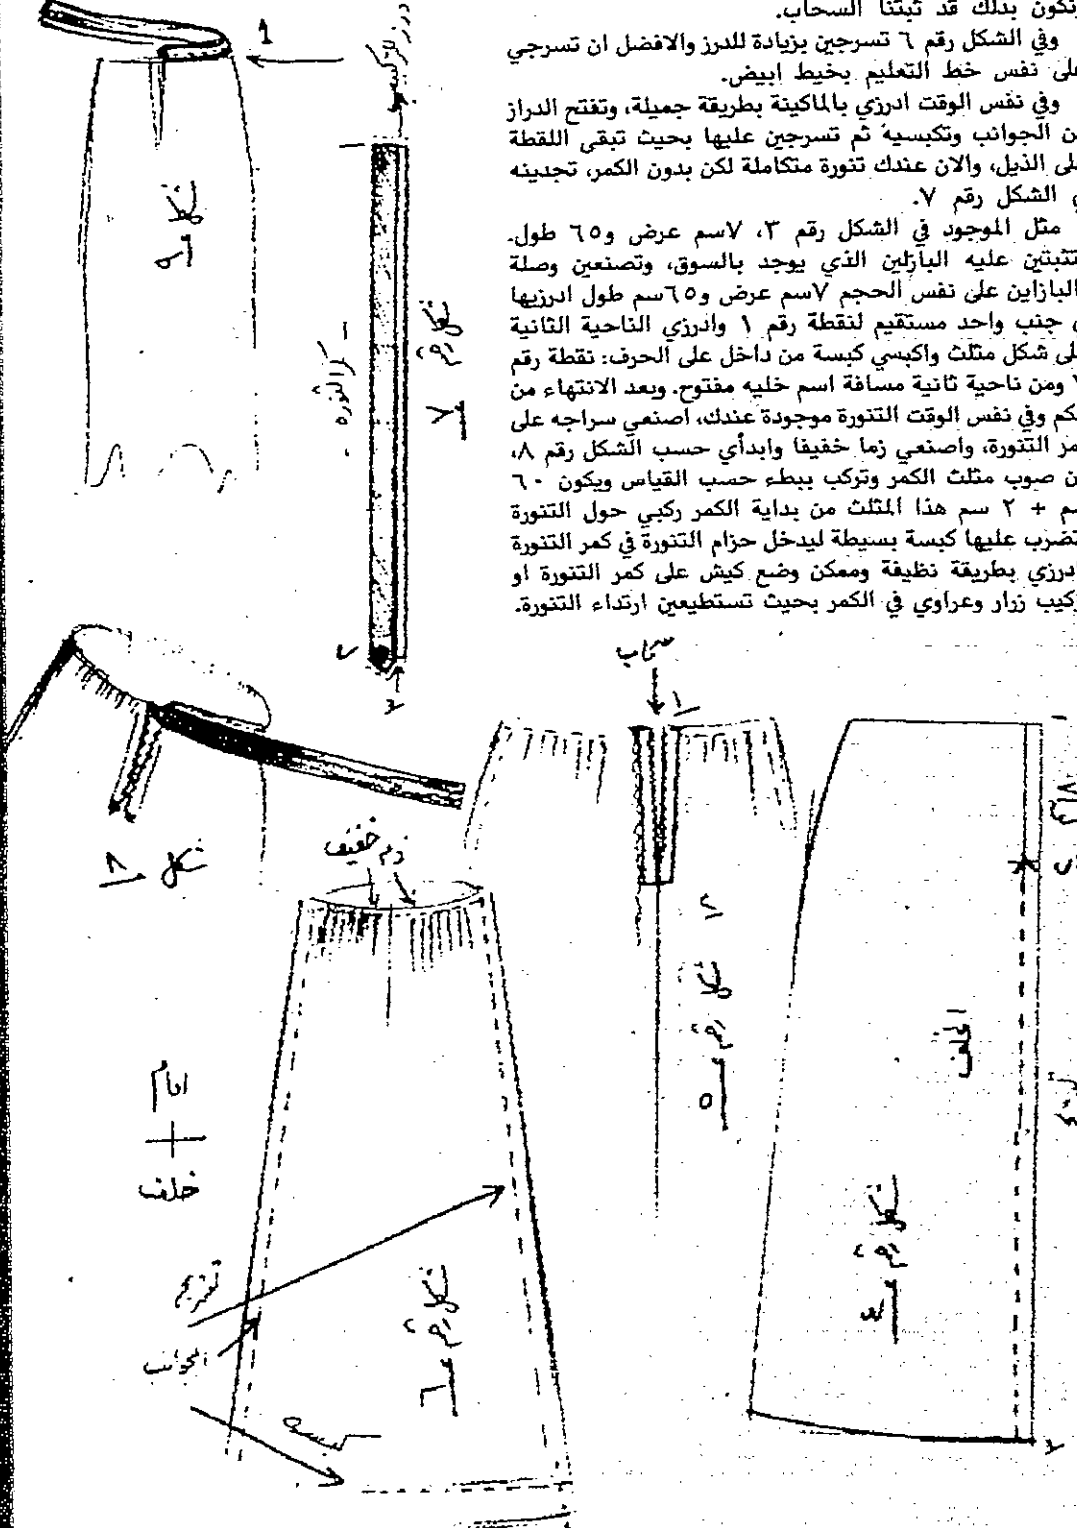 وتكون بذلك قد ثبتنا السحاب.
وفي الشكل رقم ٦ تسرجين بزيادة للدرز والافضل ان تسرجي
على نفس خط التعليم بخيط ابيض.
وفي نفس الوقت ادرزي بالماكينة بطريقة جميلة، وتفتح الدراز
من الجوانب وتكبسيه ثم تسرجين عليها بحيث تبقى اللقطة
على الذيل، والان عندك تنورة متكاملة لكن بدون الكمر، تجدينه
في الشكل رقم ٧.
مثل الموجود في الشكل رقم ٣، ٧سم عرض و٦٥ طول.
تثبتين عليه البازلين الذي يوجد بالسوق، وتصنعين وصلة
البازاين على نفس الحجم ٧سم عرض و٦٥سم طول ادرزيها
جنب واحد مستقيم لنقطة رقم ١ وادرزي الناحية الثانية
على شكل مثلث واكبسي كبسة من داخل على الحرف: نقطة رقم
ومن ناحية ثانية مسافة اسم خليه مفتوح. وبعد الانتهاء من
وفي نفس الوقت التنورة موجودة عندك، اصنعي سراجه على
كمر التنورة، واصنعي زما خفيفا وابدأي حسب الشكل رقم ٨،
من صوب مثلث الكمر وتركب ببطء حسب القياس ويكون ٦٠
سم + ٢ سم هذا المثلث من بداية الكمر ركبي حول التنورة
تضرب عليها كبسة بسيطة ليدخل حزام التنورة في كمر التنورة
ادرزي بطريقة نظيفة وممكن وضع كبش على كمر التنورة او
تركيب زرار وعراوي في الكمر بحيث تستطيعين ارتداء التنورة.
1
شكل ٩
كمر التنوره
شكل رقم ٧
٢
٣
سحاب
١
٢
شكل ٨
زم خفيف
شكل رقم ٥
الخلف
شكل رقم ٤
امام
+
خلف
الجوانب
شكل رقم ٦
كبسه